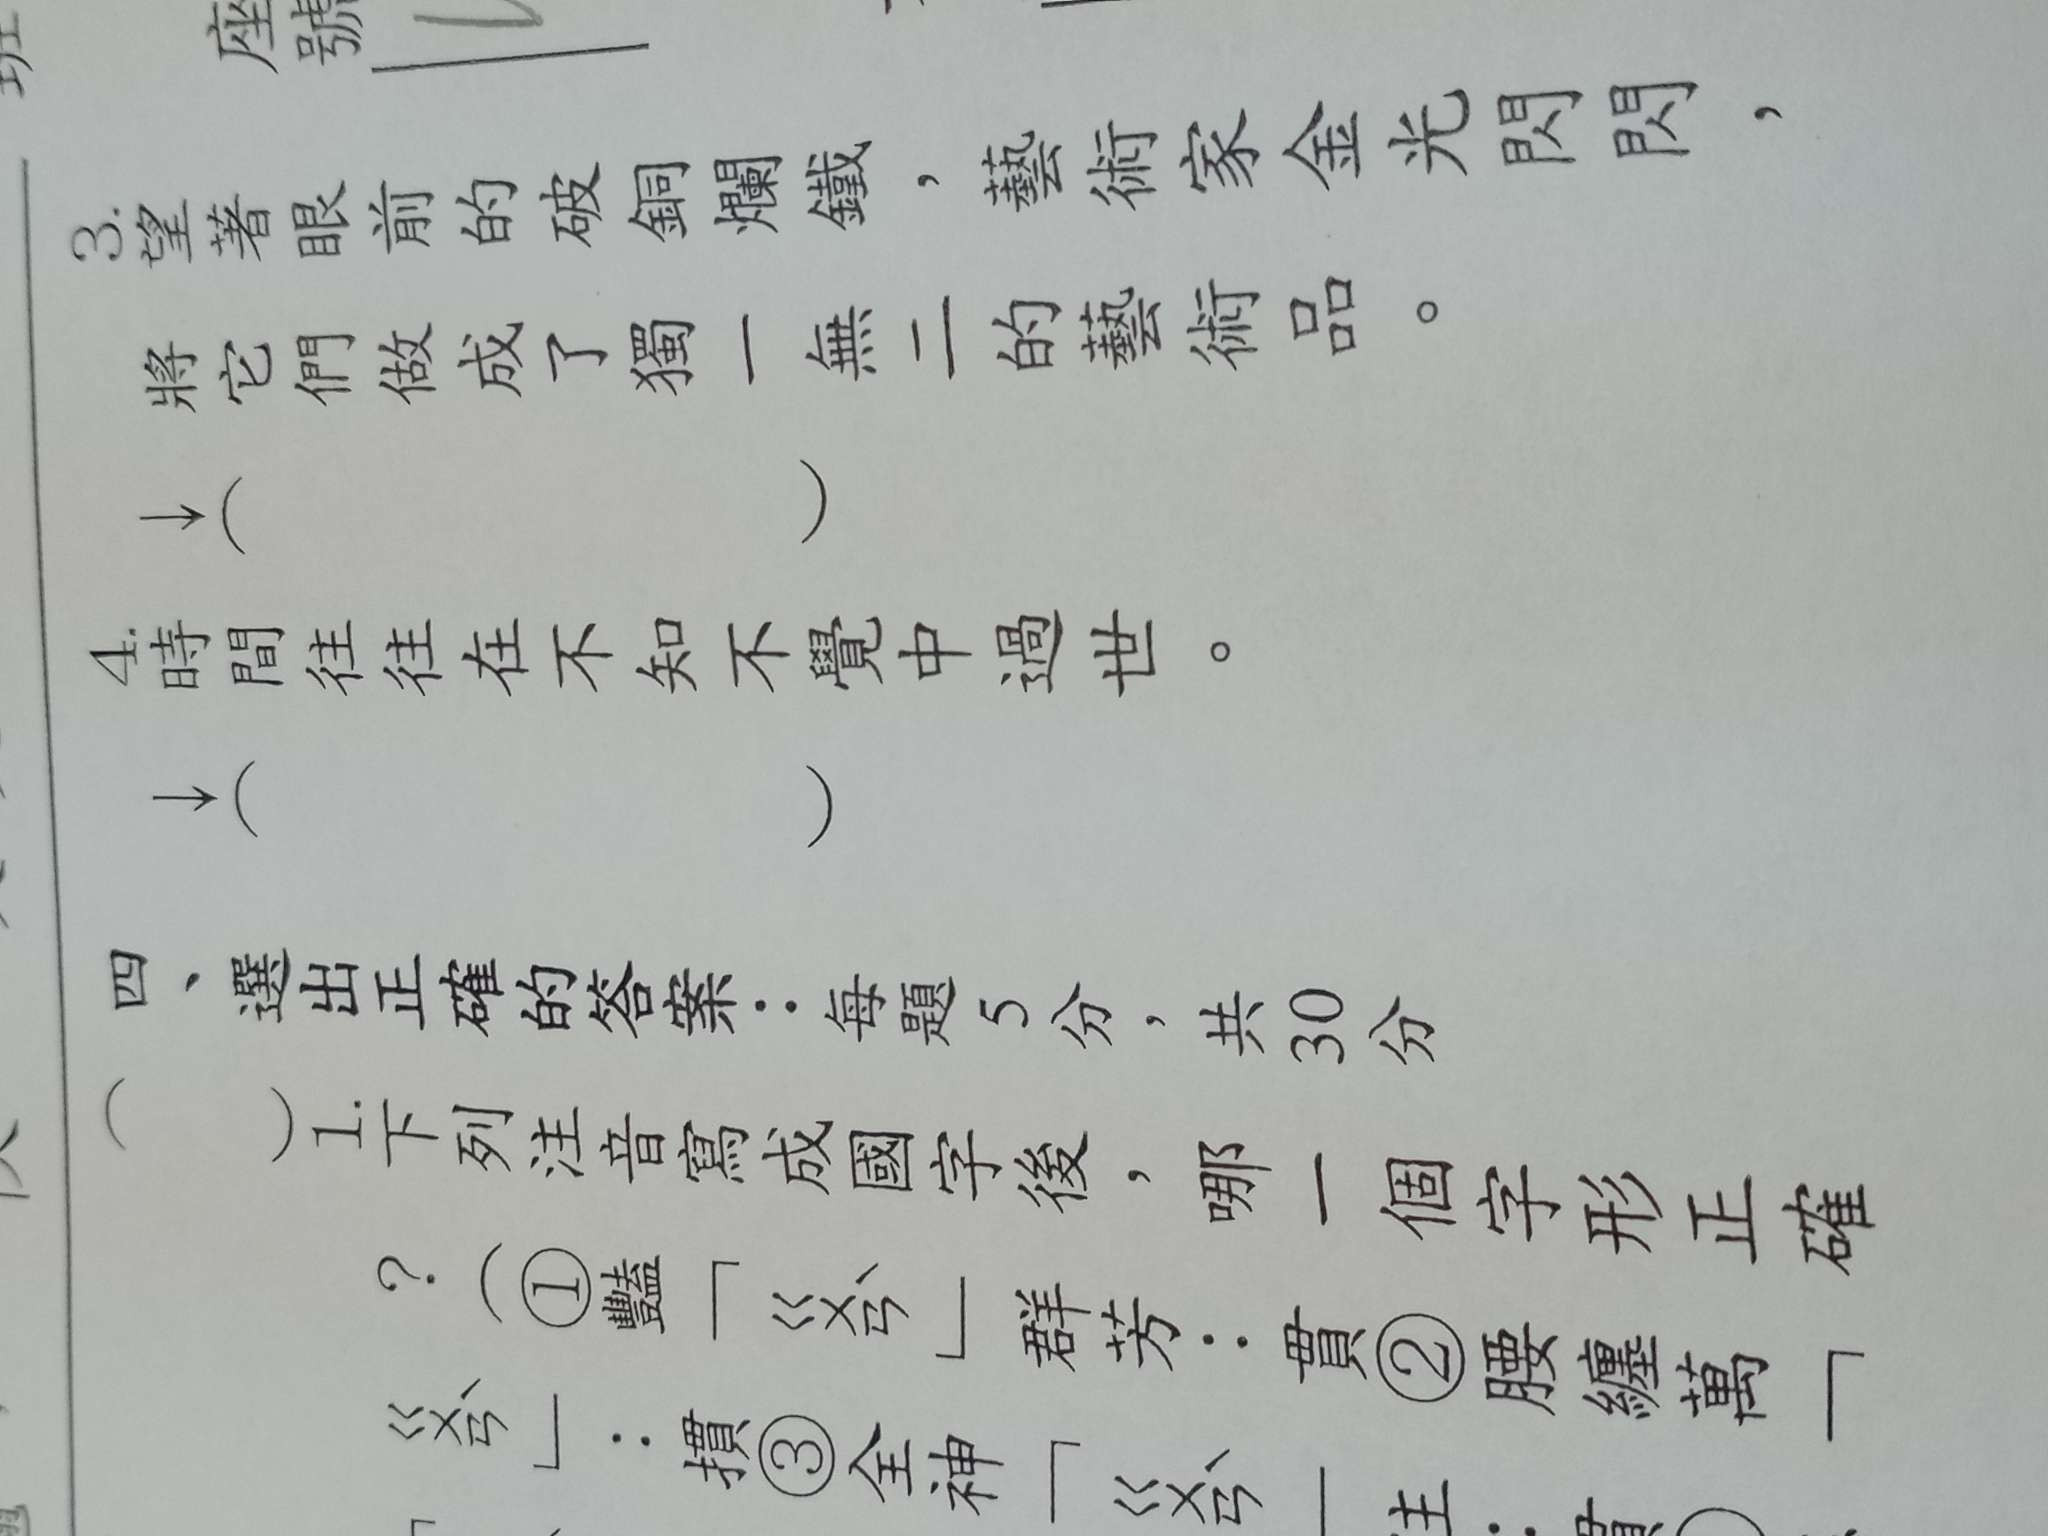 班
座號
3.望著眼前的破銅爛鐵，藝術家金光閃閃，
將它們做成了獨一無二的藝術品。
→(　　　　　　)
4.時間往往在不知不覺中過世。
→(　　　　　　)
四、選出正確的答案：每題5分，共30分
(　　)1.下列注音寫成國字後，哪一個字形正確
？(①豔「ㄍㄨㄢˋ」群芳：貫②腰纏萬「
ㄍㄨㄢˋ」：摜③全神「ㄍㄨㄢˋ」注：貫